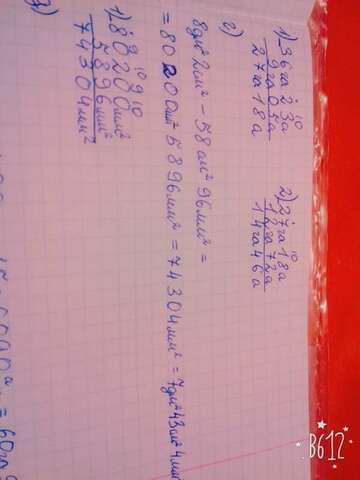 1) 36га 23а
9га 05а
27га 18а
2) 27га 18а
12га 72а
14га 46а
г)
8дм² 2см² - 58см² 96мм² =
= 80200мм² 5896мм² = 74304мм² = 7дм² 43см² 4мм²
1) 80200мм²
5896мм²
74304мм²
B612